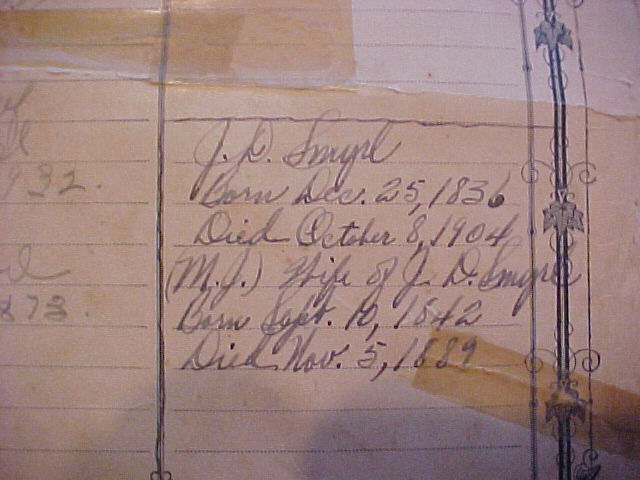 J. D. Smyrl
Born Dec. 25, 1836
Died October 8, 1904
(M. J.) Wife of J. D. Smyrl
Born Sept. 10, 1842
Died Nov. 5, 1889
932.
73.